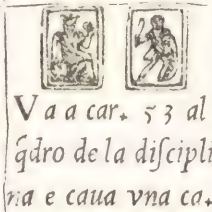 V a a car. 53 al
q̃dro de la diſcipli
na e caua vna ca.